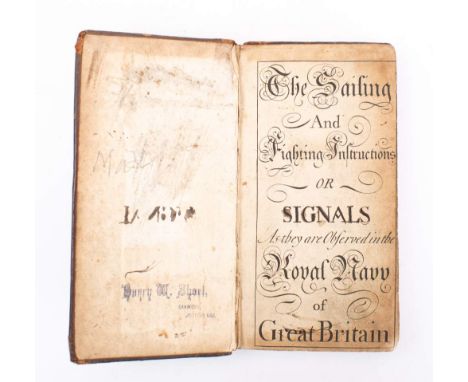 The Sailing
And
Fighting Instructions
OR
SIGNALS
As they are Observed in the
Royal Navy
of
Great Britain